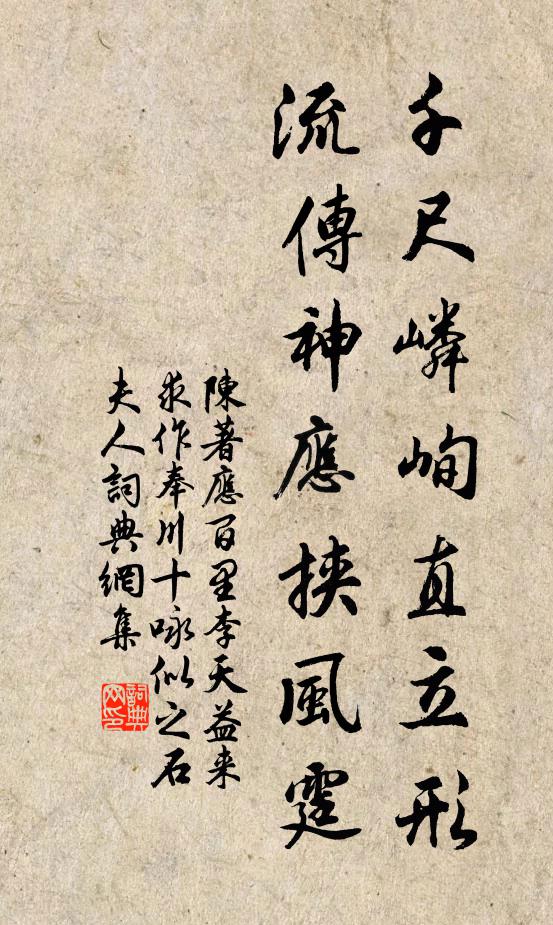 千尺嶙峋直立形
流傳神應挾風霆
陳著應百里李天益来
求作奉川十咏似之石
夫人詞典網集
詞典網印